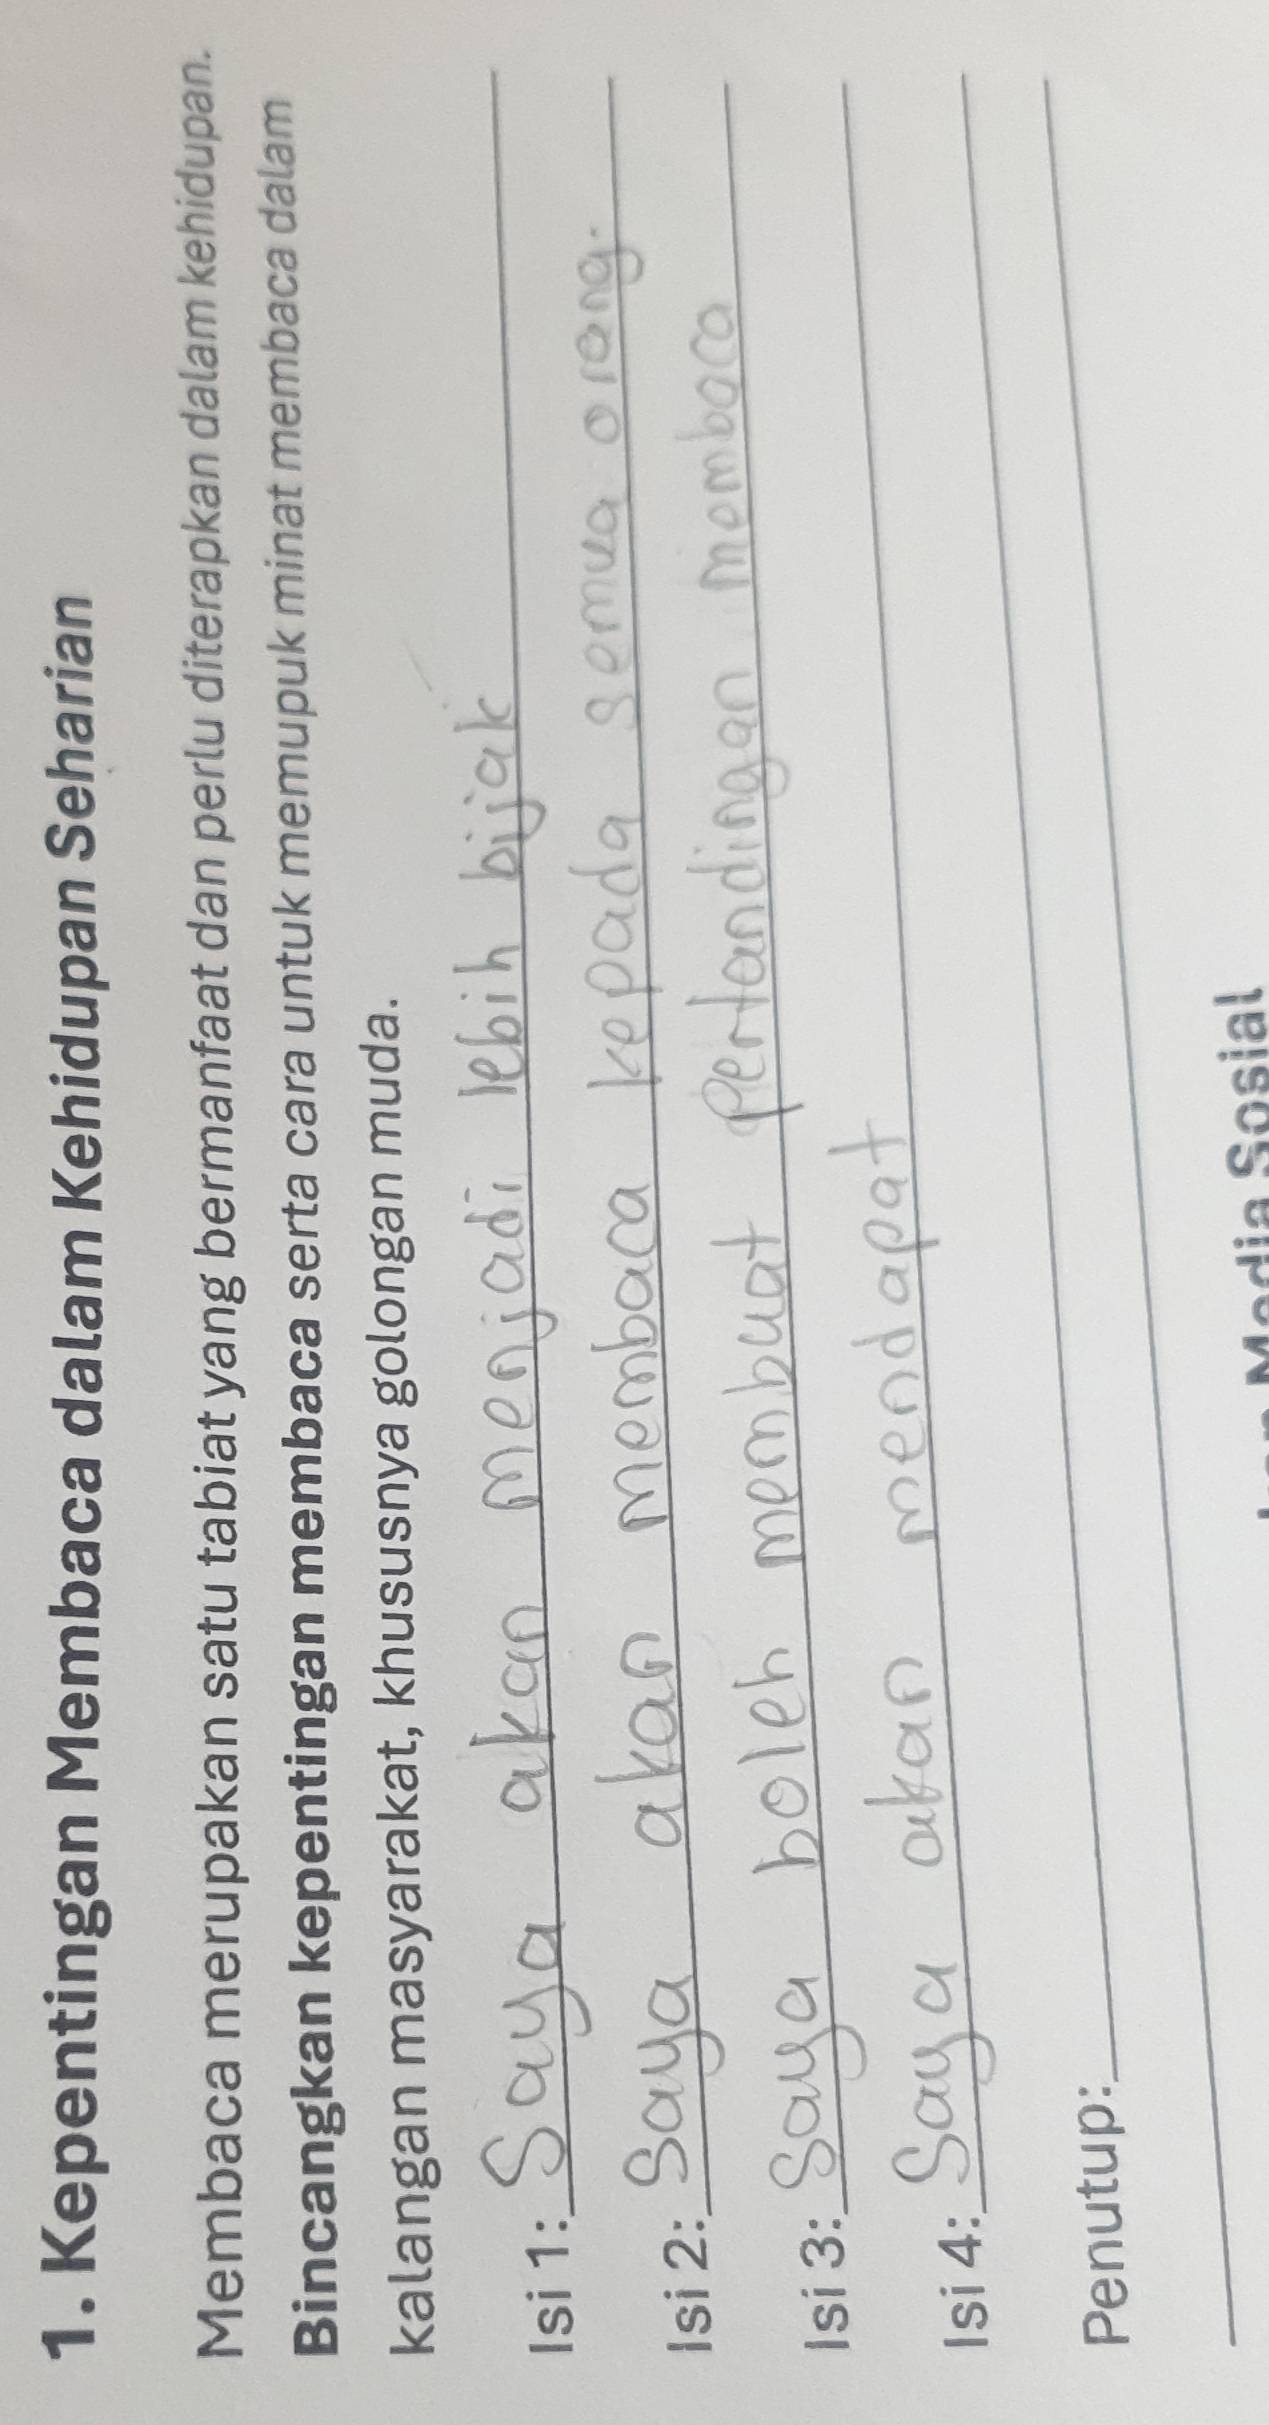 1. Kepentingan Membaca dalam Kehidupan Seharian
Membaca merupakan satu tabiat yang bermanfaat dan perlu diterapkan dalam kehidupan.
Bincangkan kepentingan membaca serta cara untuk memupuk minat membaca dalam
kalangan masyarakat, khususnya golongan muda.
Isi 1: Saya akan menjadi lebih bijak
Isi 2: Saya akan membaca kepada semua orang.
Isi 3: Saya boleh membuat pertandingan membaca
Isi 4: Saya akan mendapat
Penutup:
Media Sosial